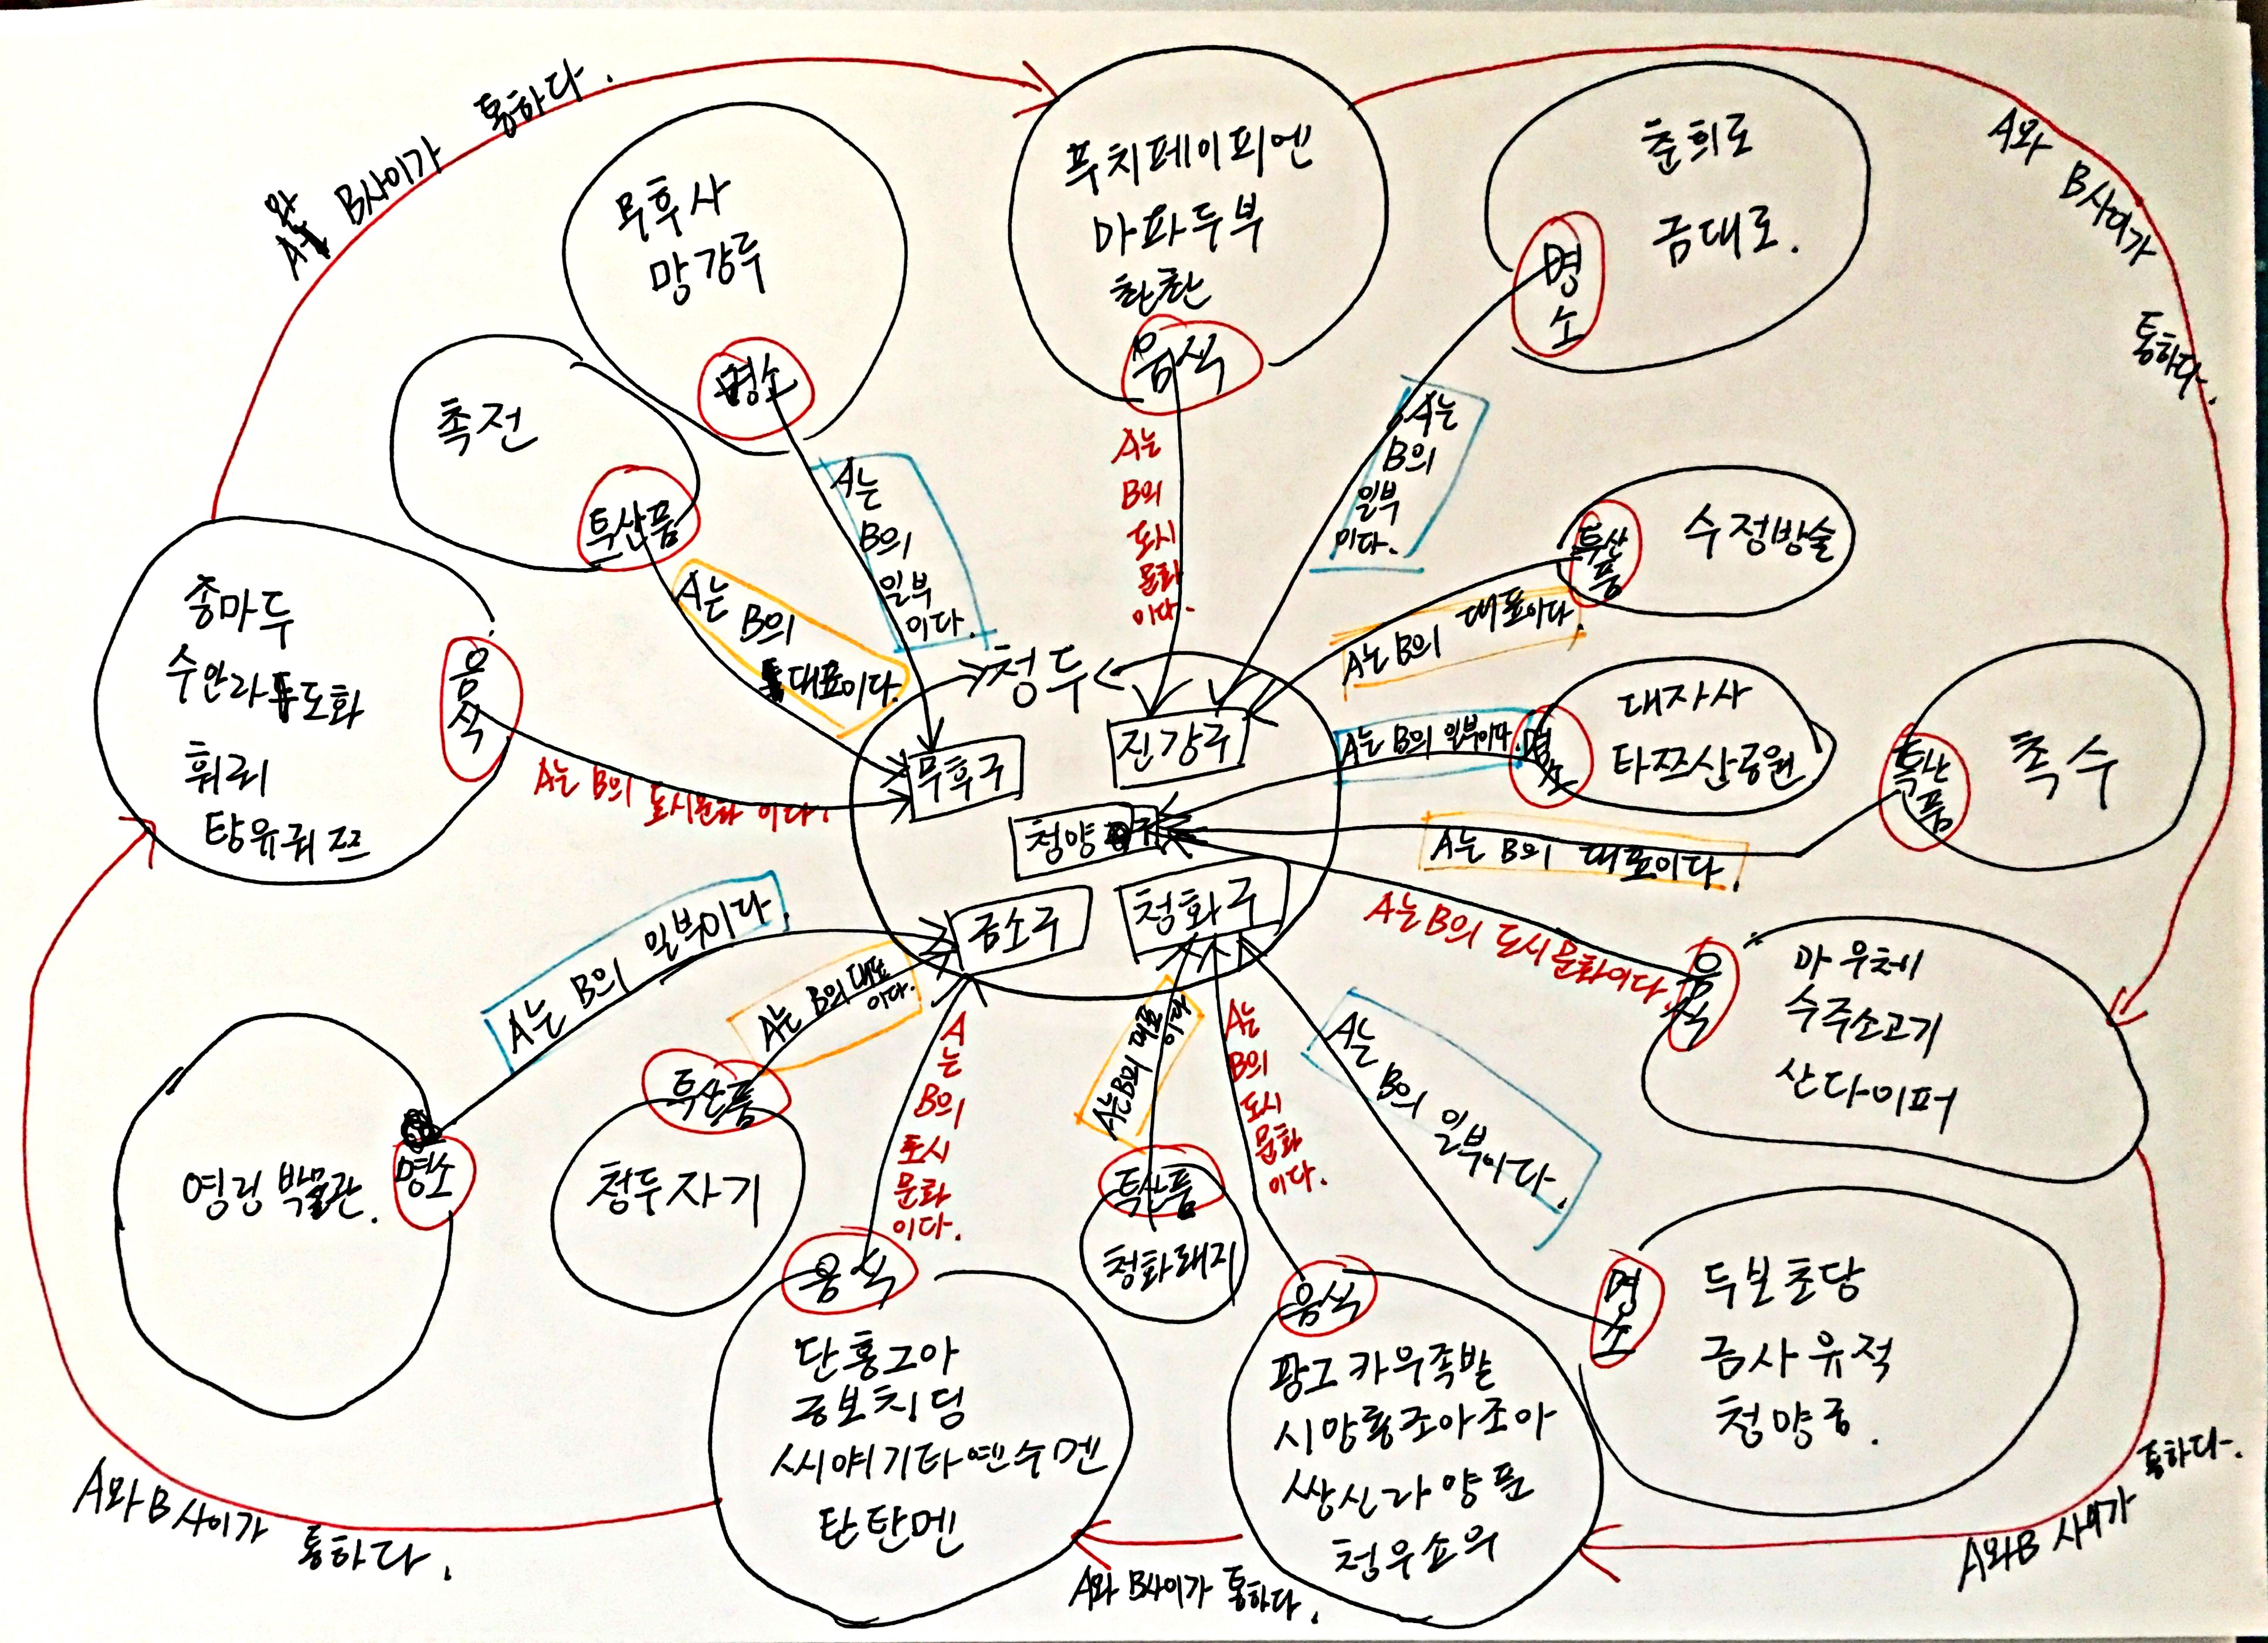 A와 B사이가 통하다.
A와 B사이가 통하다.
무후사
망강루
명소
푸치페이피엔
마파두부
촨촨
음식
춘희로
금대로.
명소
촉전
특산품
A는 B의 일부이다.
A는 B의 도시문화이다.
A는 B의 일부이다.
특산품
수정방술
A는 B의 대표이다.
A는 B의 대표이다.
종마두
수안라 도화
훠궈
탕유궈쯔
음식
A는 B의 도시문화이다.
청두
무후구
진강구
청양구
금소구
청화구
A는 B의 일부이다.
명소
대자사
타쯔산공원
A는 B의 대표이다.
특산품
촉수
A는 B의 도시문화이다.
음식
마우체
수주소고기
산다이퍼
A는 B의 일부이다.
명소
영링 박물관.
A는 B의 대표이다.
특산품
청두자기
A는 B의 도시문화이다.
음식
단홍그아
공보치딩
씨야기타엔수멘
탄탄멘
A는 B의 대표이다.
특산품
청화돼지
A는 B의 도시문화이다.
음식
팡그카우족발
시망룽조아조아
쌍신라양푼
청우쇼우
A는 B의 일부이다.
명소
두보초당
금사유적
청양궁.
A와 B사이가 통하다.
A와 B사이가 통하다.
A와 B사이가 통하다.